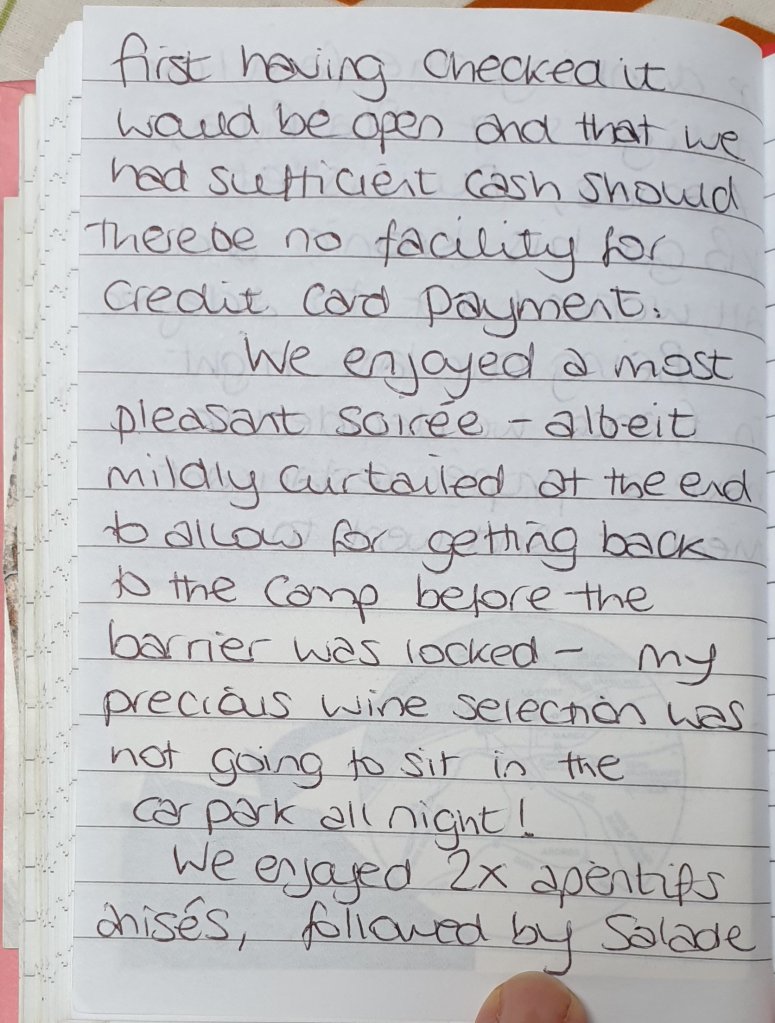 first having checked it
would be open and that we
had sufficient cash should
there be no facility for
credit card payment.
We enjoyed a most
pleasant soirée - albeit
mildly curtailed at the end
to allow for getting back
to the camp before the
barrier was locked - my
precious wine selection was
not going to sit in the
car park all night!
We enjoyed 2x aperitifs
anisés, followed by Salade